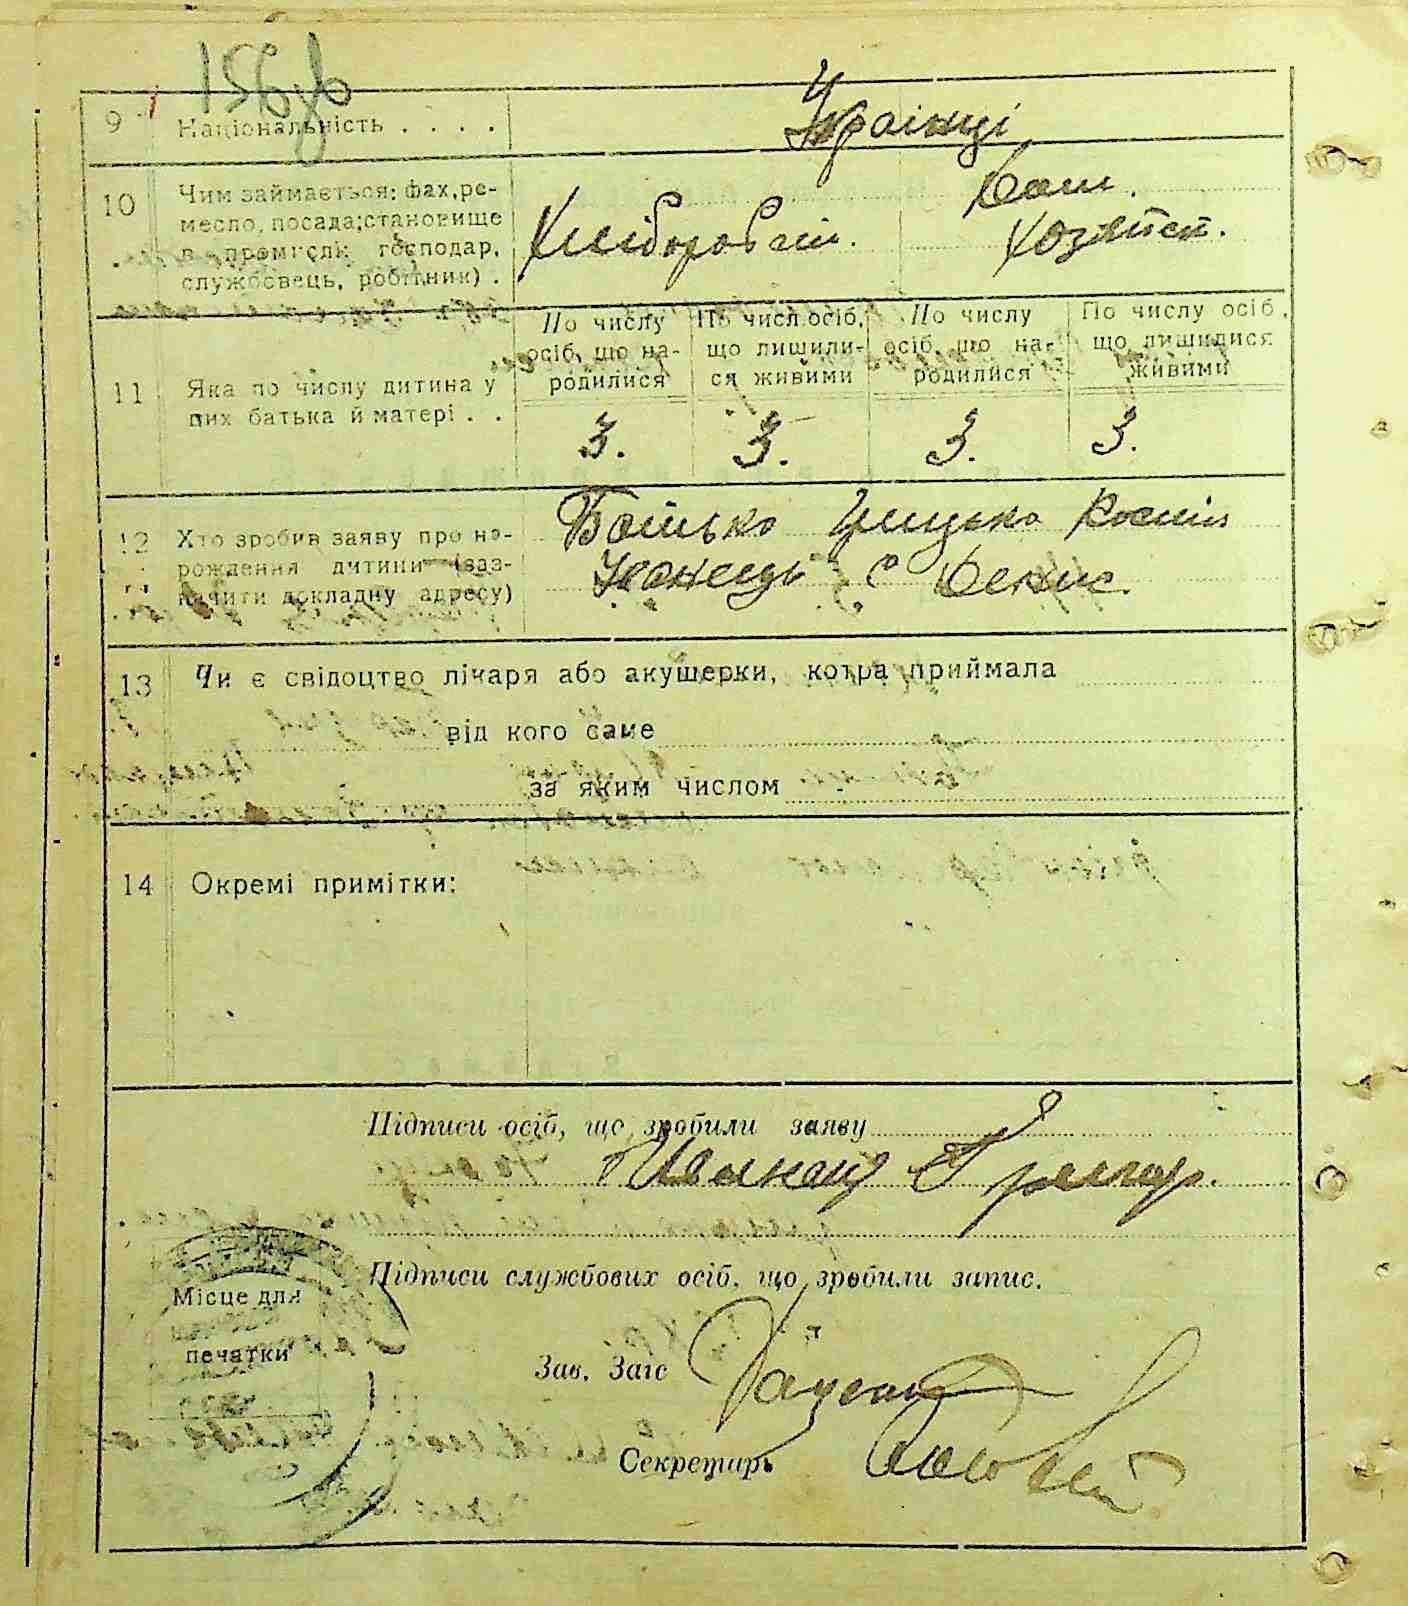 9 Національність . . . .
Українці
10 Чим займається: фах, ре-
месло, посада; становище
в промислі: господар,
службовець, робітник) .
Хліборобст.
Дом.
хозяйст.
11 Яка по числу дитина у
цих батька й матері . .
По числу осіб, що на-родилися
По числ. осіб, що лишили-ся живими
По числу осіб, що на-родилися
По числу осіб, що лишилися живими
3. 3. 3. 3.
12 Хто зробив заяву про на-
рождення дитини (заз-
начити докладну адресу)
Батько
с Денис.
13 Чи є свідоцтво лікаря або акушерки, котра приймала
від кого саме
за яким числом
14 Окремі примітки:
Підписи осіб, що зробили заяву
Підписи службових осіб, що зробили запис.
Місце для
печатки
Зав. Загс
Секретарь